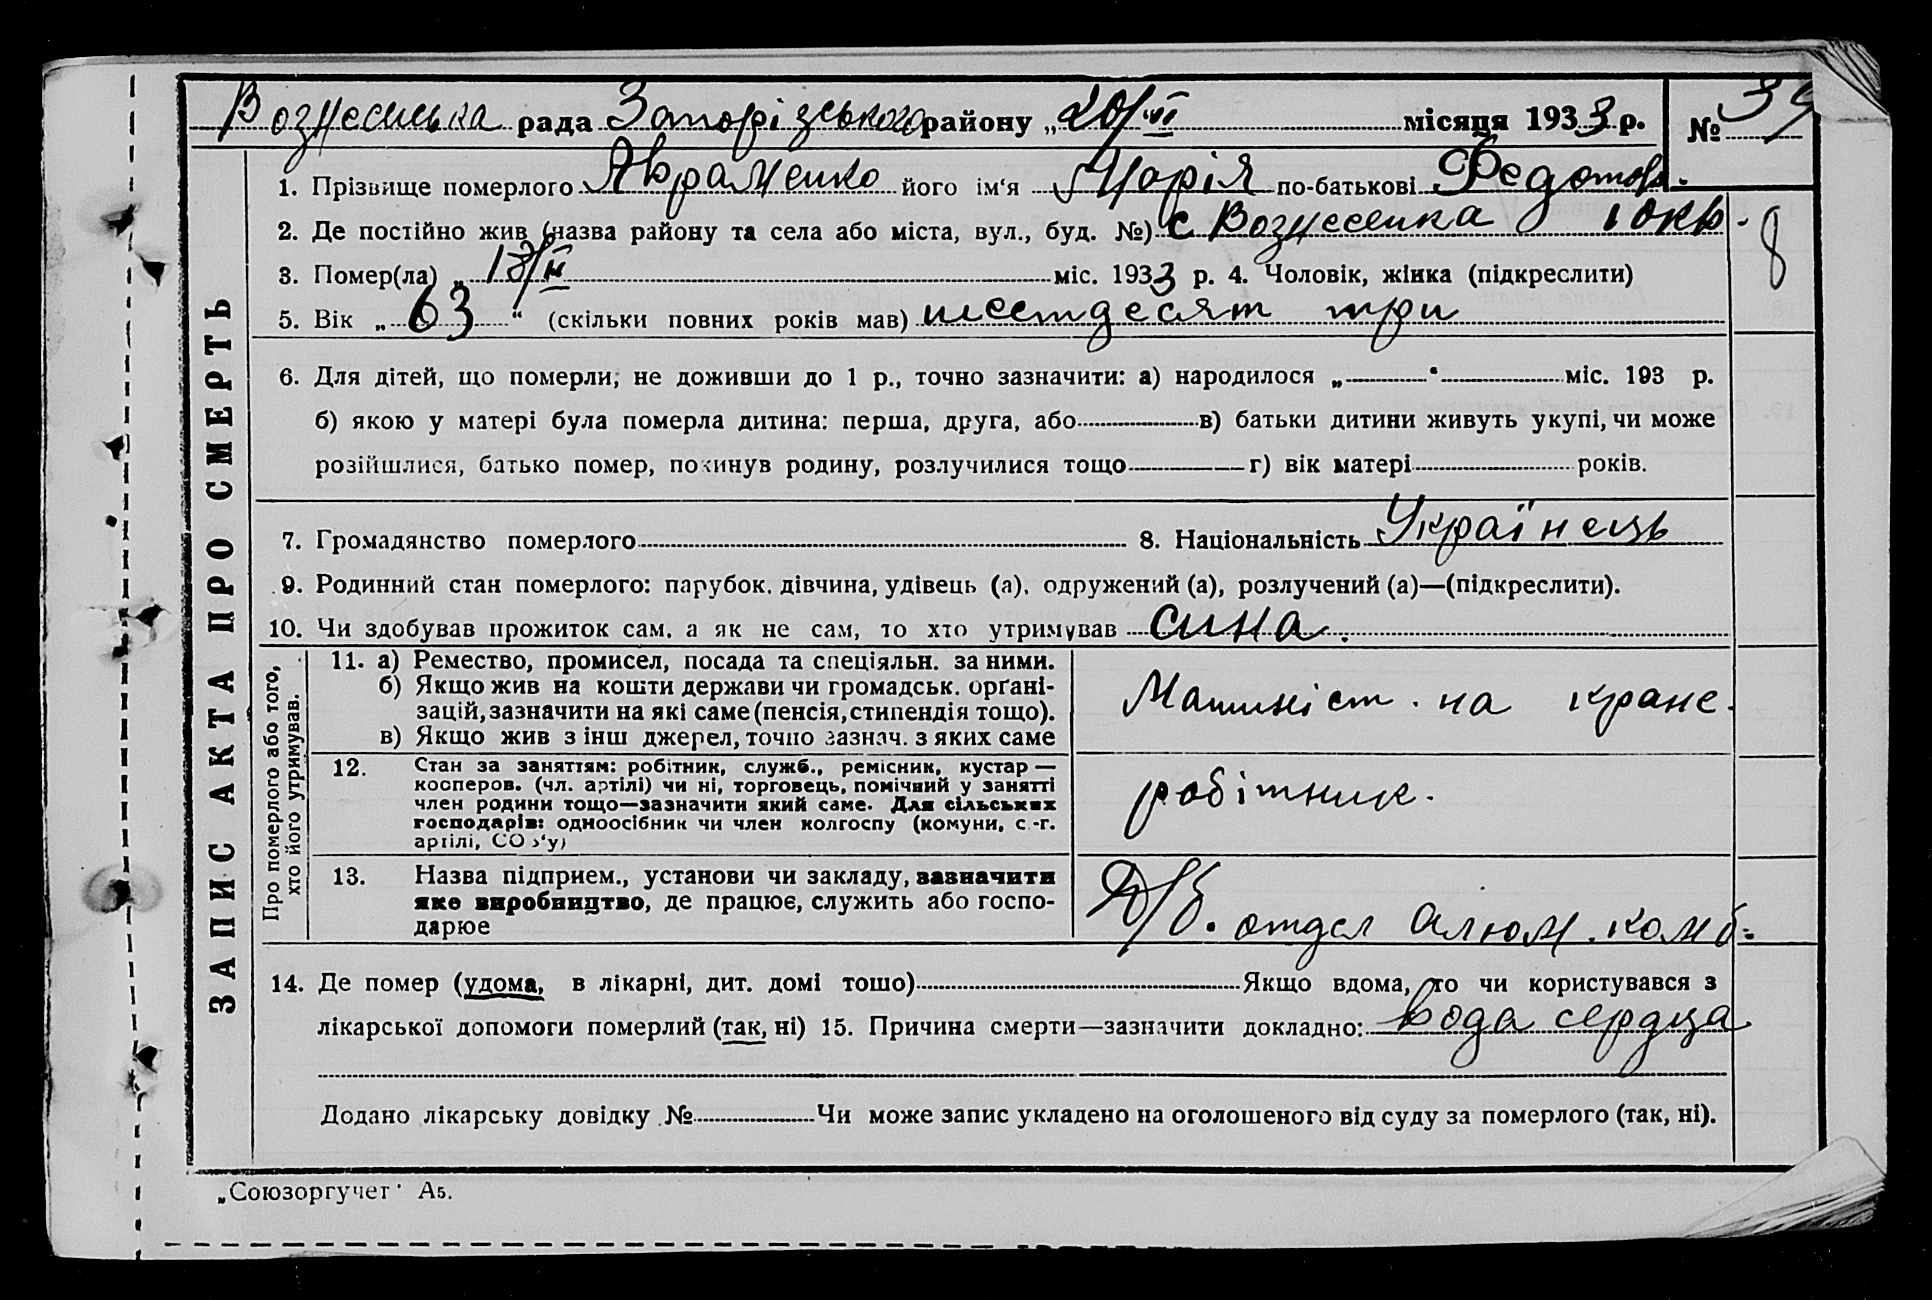 Вознесенська рада Запорізського району „20/VI місяця 1933 р. № 39
1. Прізвище померлого Авраменко його ім‘я Марія по-батькові Федотов.
2. Де постійно жив (назва району та села або міста, вул., буд. №) с Вознесенка 1 окр.
8
3. Помер(ла) „ 18/VI міс. 1933 р. 4. Чоловік, жінка (підкреслити)
5. Вік „ 63 “ (скільки повних років мав) шестдесят три
6. Для дітей, що померли, не доживши до 1 р., точно зазначити: а) народилося „ “ міс. 193 р.
б) якою у матері була померла дитина: перша, друга, або в) батьки дитини живуть укупі, чи може
розійшлися, батько помер, покинув родину, розлучилися тощо г) вік матері років.
7. Громадянство померлого 8. Національність Українець
9. Родинний стан померлого: парубок, дівчина, удівець (а), одружений (а), розлучений (а)—(підкреслити).
10. Чи здобував прожиток сам, а як не сам, то хто утримував сина.
ЗАПИС АКТА ПРО СМЕРТЬ
Про померлого або того,
хто його утримував.
11. а) Ремество, промисел, посада та спеціяльн. за ними.
б) Якщо жив на кошти держави чи громадськ. орґані-
зацій, зазначити на які саме (пенсія, стипендія тощо).
в) Якщо жив з інш джерел, точно зазнач. з яких саме
Машиніст. на кране.
12. Стан за заняттям: робітник, служб., ремісник, кустар —
косперов. (чл. артілі) чи ні, торговець, помічний у занятті
член родини тощо—зазначити який саме. Для сільських
господарів: одноосібник чи член колгоспу (комуни, с.-г.
артілі, СОЗ‘у)
робітник.
13. Назва підприєм., установи чи закладу, зазначити
яке виробництво, де працює, служить або госпо-
дарює
Д/б. отдел алюм. комб.
14. Де помер (удома, в лікарні, дит. домі тошо) Якщо вдома, то чи користувався з
лікарської допомоги померлий (так, ні) 15. Причина смерти—зазначити докладно: вода сердца
Додано лікарську довідку № Чи може запис укладено на оголошеного від суду за померлого (так, ні).
„Союзоргучет“ А5.